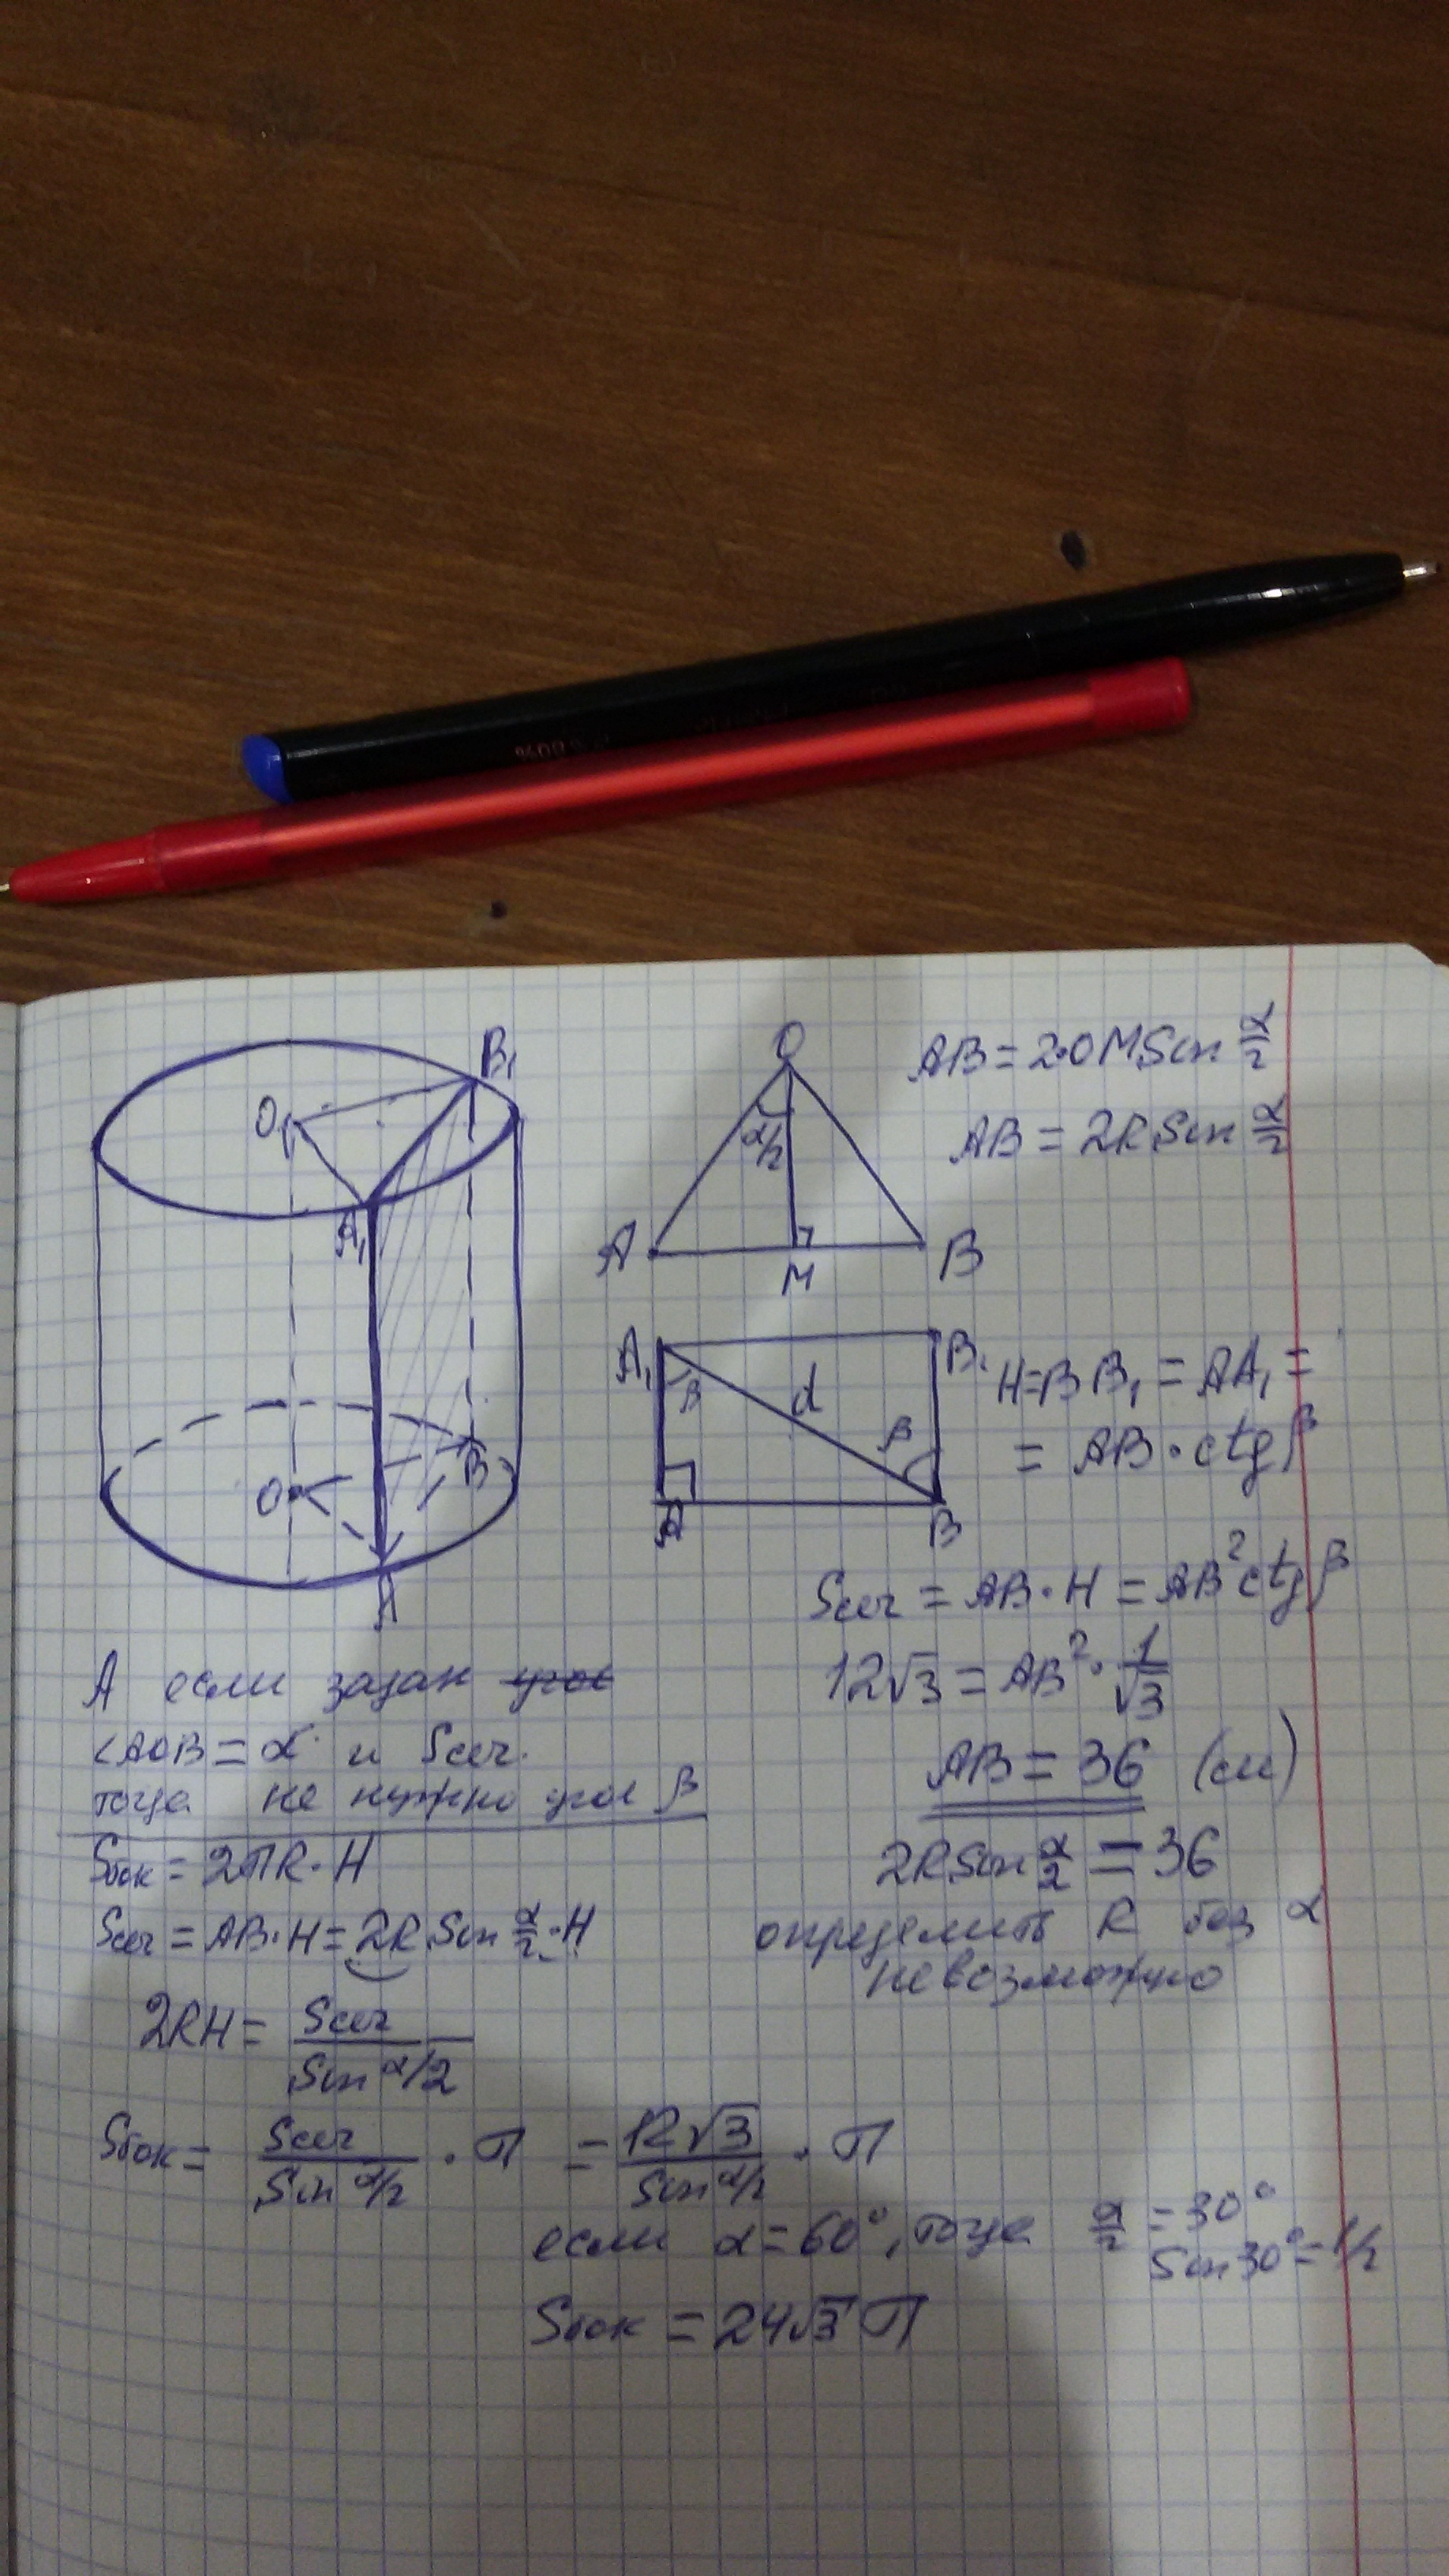 B₁
O₁
A₁
O
B
A
O
α/2
A
M
B
AB = 2·OM Sin α/2
AB = 2R Sin α/2
A₁
B₁
β
d
β
A
B
H=BB₁ = AA₁ =
= AB · ctg β
Sсеч = AB · H = AB² ctg β
12√3 = AB² · 1/√3
AB = 36 (см)
2R Sin α/2 = 36
определить R без α
невозможно
А если задан угол
<AOB = α и Sсеч.
тогда не нужно угол β
Sбок = 2ПR · H
Sсеч = AB·H = 2R Sin α/2 · H
2RH = Sсеч / Sin α/2
Sбок = Sсеч / Sin α/2 · П = 12√3 / Sin α/2 · П
если α = 60°, тогда α/2 = 30°
Sin 30° = 1/2
Sбок = 24√3 П